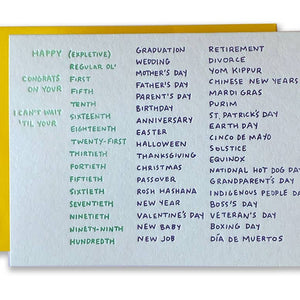 HAPPY
CONGRATS
ON YOUR
I CAN'T WAIT
'TIL YOUR
(EXPLETIVE)
REGULAR OL'
FIRST
FIFTH
TENTH
SIXTEENTH
EIGHTEENTH
TWENTY-FIRST
THIRTIETH
FORTIETH
FIFTIETH
SIXTIETH
SEVENTIETH
NINETIETH
NINETY-NINTH
HUNDREDTH
GRADUATION
WEDDING
MOTHER'S DAY
FATHER'S DAY
PARENT'S DAY
BIRTHDAY
ANNIVERSARY
EASTER
HALLOWEEN
THANKSGIVING
CHRISTMAS
PASSOVER
ROSH HASHANA
NEW YEAR
VALENTINE'S DAY
NEW BABY
NEW JOB
RETIREMENT
DIVORCE
YOM KIPPUR
CHINESE NEW YEARS
MARDI GRAS
PURIM
ST. PATRICK'S DAY
EARTH DAY
CINCO DE MAYO
SOLSTICE
EQUINOX
NATIONAL HOT DOG DAY
GRANDPARENT'S DAY
INDIGENOUS PEOPLE DAY
BOSS'S DAY
VETERAN'S DAY
BOXING DAY
DÍA DE MUERTOS